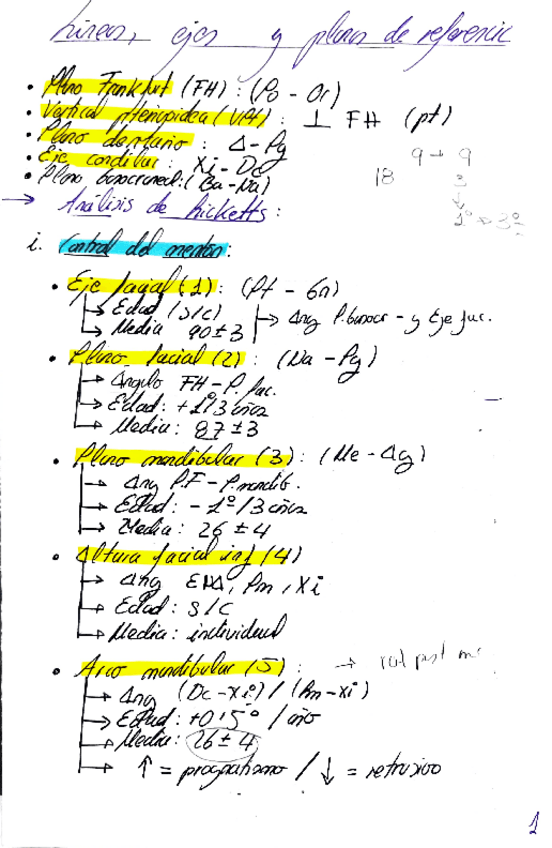 Líneas, ejes y planos de referencia
• Plano Frankfurt (FH) : (Po - Or)
• Vertical pterigoidea (VPt) : ⊥ FH (pt)
• Plano dentario : A - Pg
• Eje condilar : Xi - Dc
• Plano basocraneal : (Ba - Na)
9 → 9
18 3
↓
1º → 3º
→ Análisis de Ricketts :
i. Control del menton :
• Eje facial (1) : (Pt - Gn)
→ Edad (s/c)
→ Media 90 ± 3
→ Ang P.basocr - y Eje fac.
• Plano facial (2) : (Na - Pg)
→ Angulo FH - P. fac.
→ Edad : + 1º/3 años
→ Media : 87 ± 3
• Plano mandibular (3) : (Me - Ag)
→ Ang P.F - P.mandib.
→ Edad : - 1º/3 años
→ Media : 26 ± 4
• Altura facial inf (4)
→ Ang ENA, Pm, Xi
→ Edad : s/c
→ Media : individual
• Arco mandibular (5) : →
→ Ang (Dc - Xi) / (Pm - Xi)
→ Edad : +0'5º / año
→ Media : 26 ± 4
→ ↑ = prognatismo / ↓ = retrusivo
1